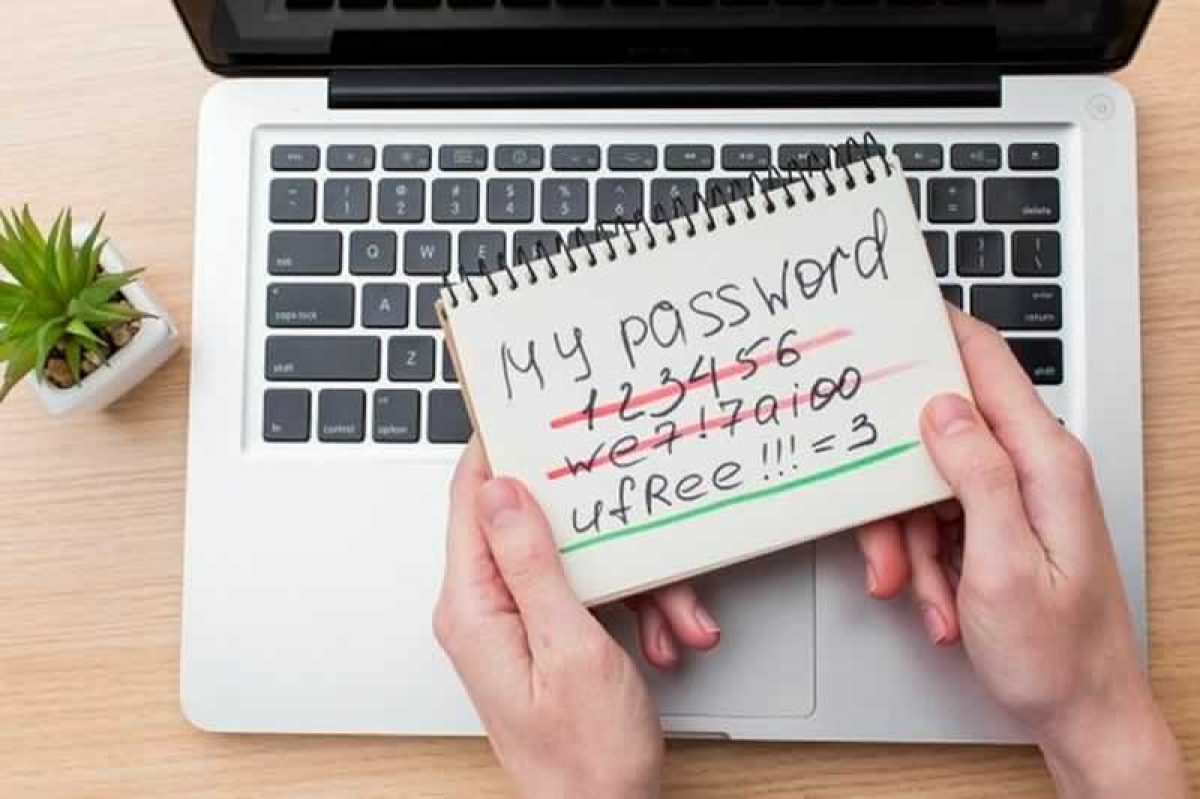 My password
123456
we7!7aioo
ufRee!!!=3
esc
! 1
@ 2
# 3
$ 4
% 5
^ 6
&
+ =
delete
tab
Q
W
E
caps lock
A
enter
return
shift
Z
shift
fn
control
alt
option